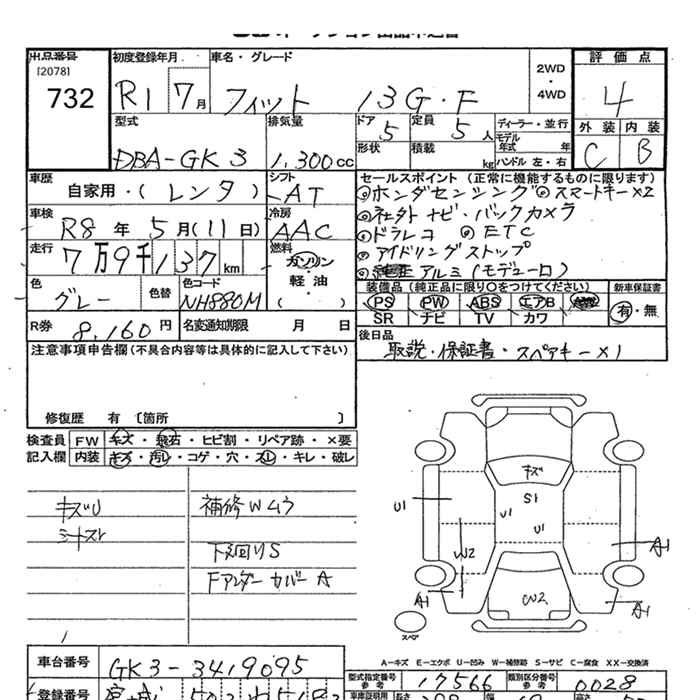 出品番号
[2078]
732
初度登録年月
R1 7月
車名・グレード
フィット 13G・F
2WD
・
4WD
評価点
4
外装 内装
C B
型式
DBA-GK3
排気量
1,300cc
ドア
5
定員
5人
ディーラー・並行
モデル年式 年
形状
積載 kg
ハンドル 左・右
車歴
自家用・(レンタ)
シフト
AT
車検
R8年5月(11日)
冷房
AAC
走行
7万9千137km
燃料
ガソリン
・
軽油
( )
色
グレー
色替
色コード
NH880M
R券 8,160円
名変通知期限 月 日
セールスポイント (正常に機能するものに限ります)
◎ホンダセンシング ◎スマートキー×2
◎社外ナビ・バックカメラ
◎ドラレコ ◎ETC
◎アイドリングストップ
◎純正アルミ(モデューロ)
装備品(純正品に限り○をつけてください)
新車保証書
PS PW ABS エアB
SR ナビ TV カワ
有・無
後日品
取説・保証書・スペアキー×1
注意事項申告欄(不具合内容等は具体的に記入して下さい)
修復歴 有 〔箇所 〕
検査員
記入欄
FW キズ・飛石・ヒビ割・リペア跡・×要
内装 キズ・汚レ・コゲ・穴・スレ・キレ・破レ
キズU
シートスレ
補修Wムラ
下廻りS
Fアンダーカバー A
キズ
S1
U1
U1
U1
W2
A1
A1
A1
W2
スペア
A−キズ E−エクボ U−凹み W−補修跡 S−サビ C−腐食 XX−交換済
車台番号
GK3-3419095
型式指定番号
参考
17566
類別区分番号
参考
0028
登録番号
宮城
車庫証明用
参考
長さ
幅
高さ